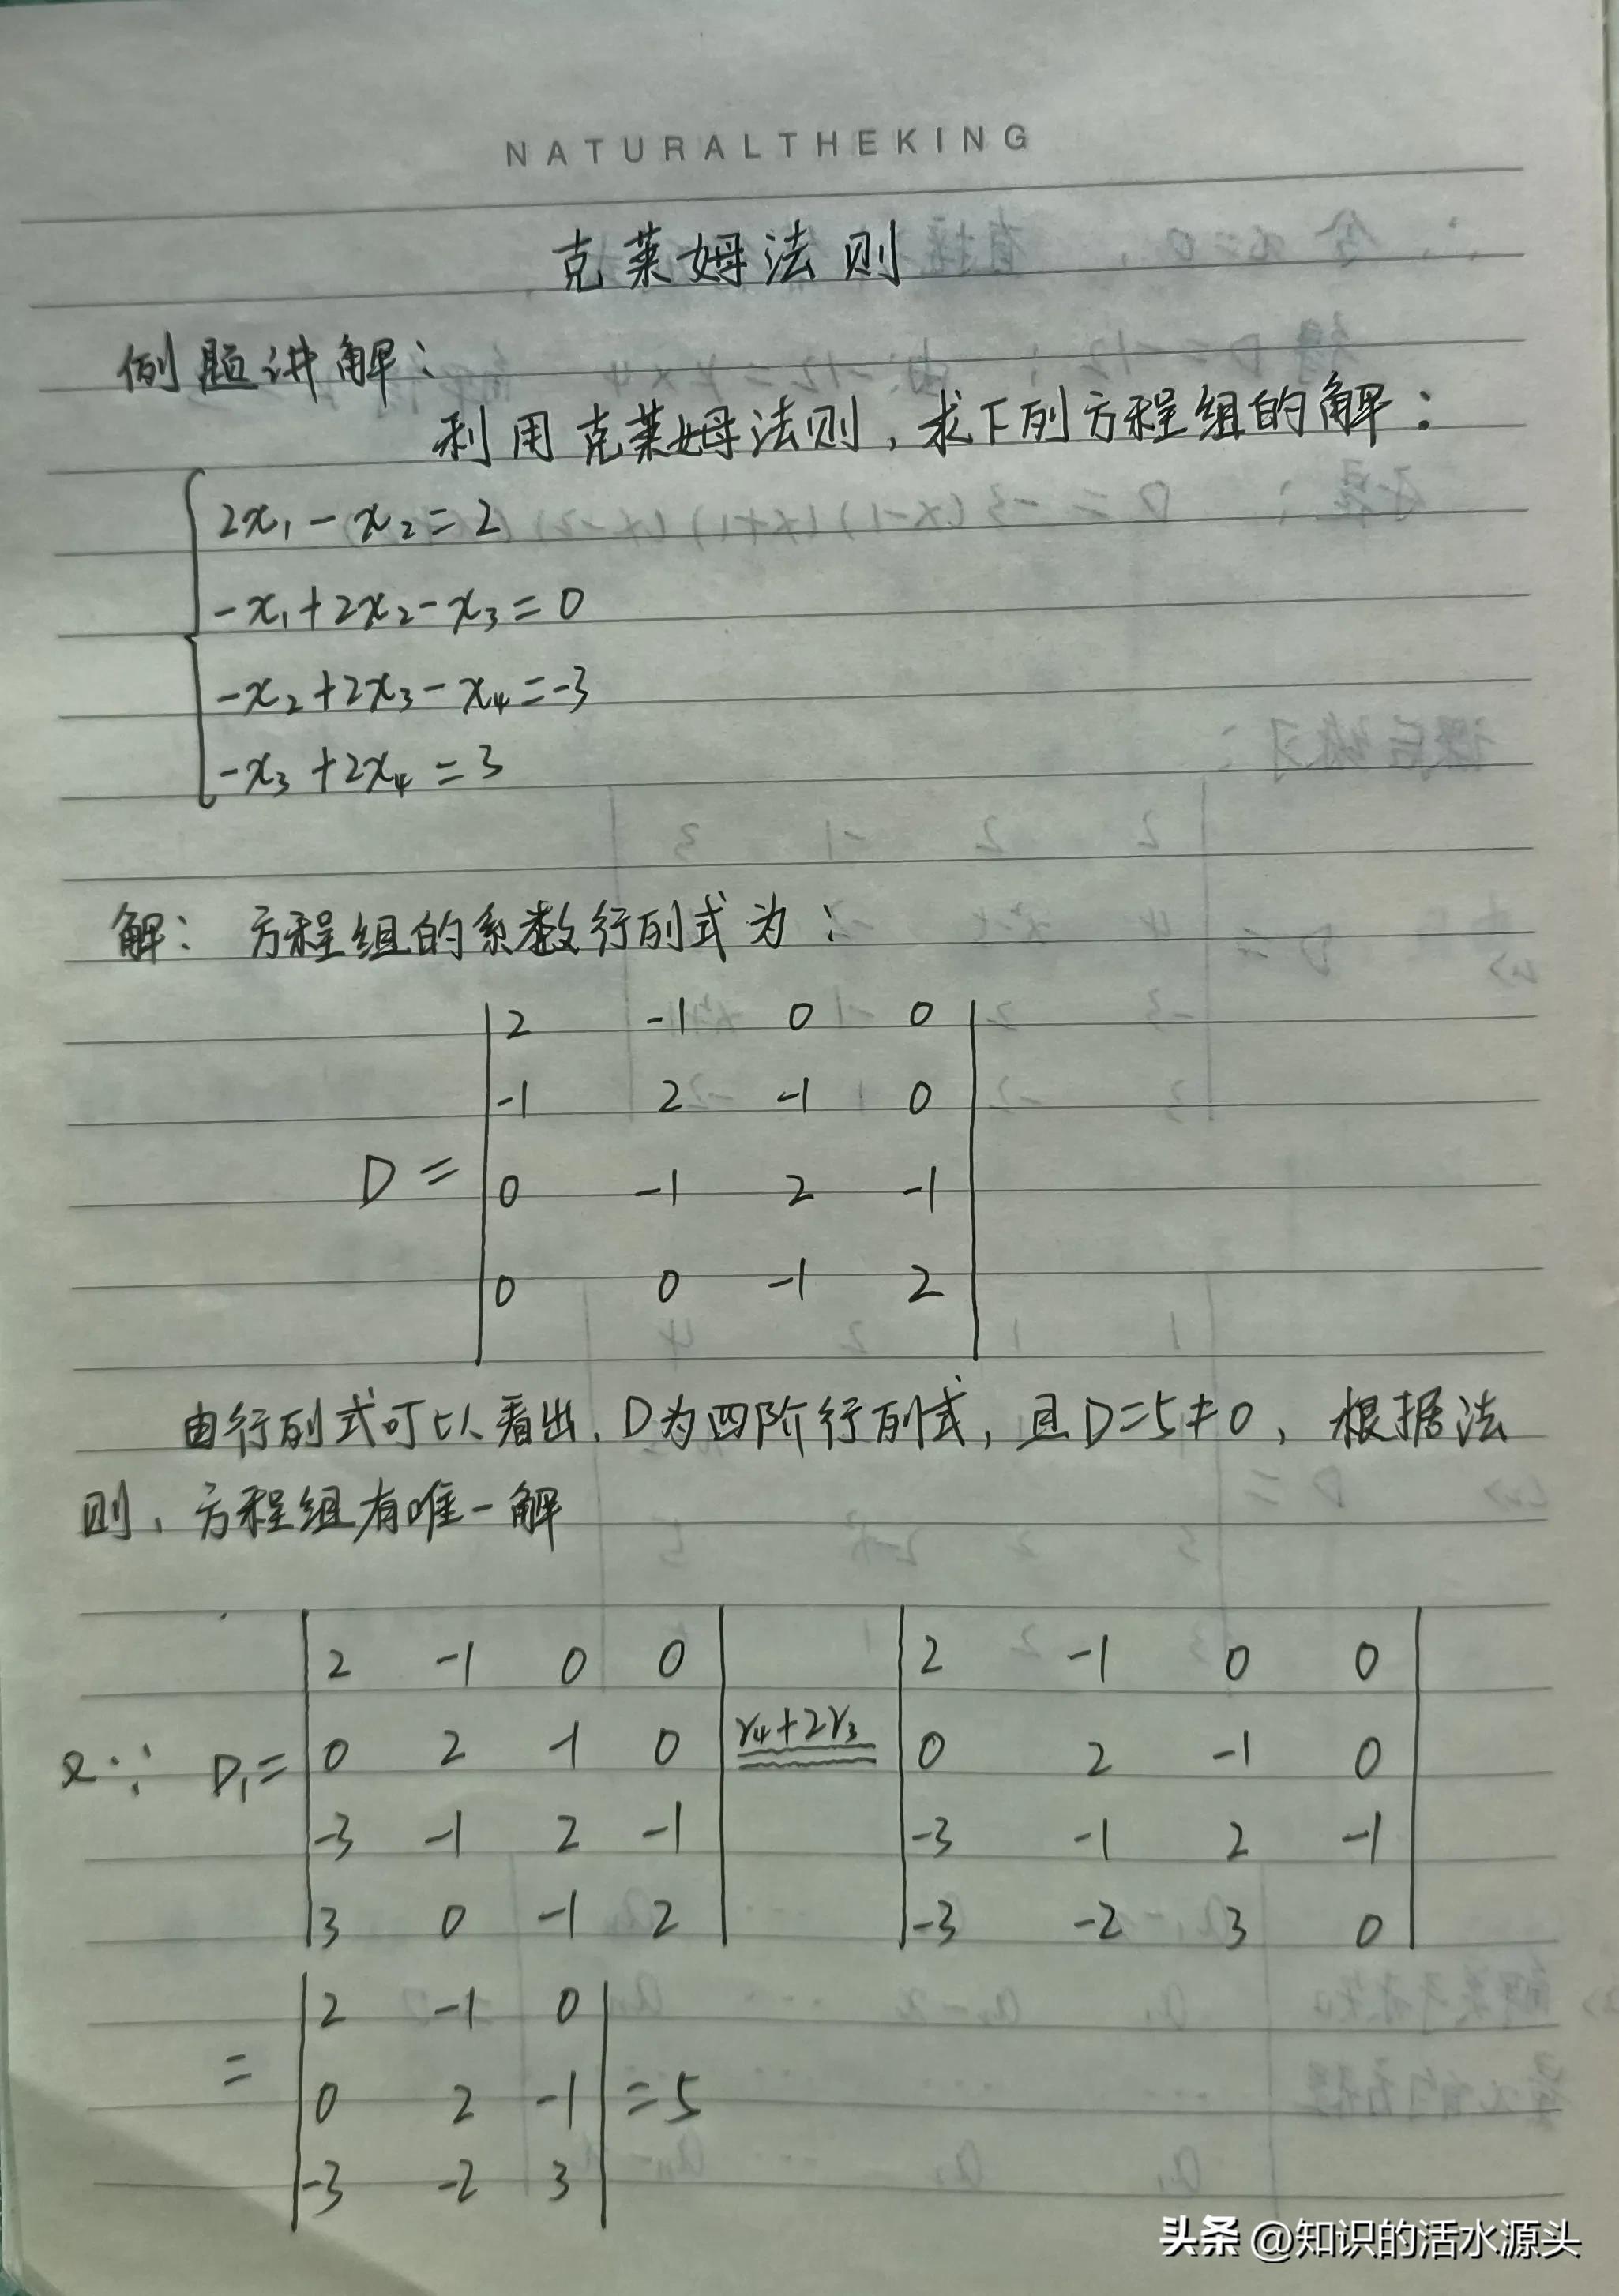 NATURALTHEKING
克莱姆法则
例题讲解：
利用克莱姆法则，求下列方程组的解：
2x₁-x₂=2
-x₁+2x₂-x₃=0
-x₂+2x₃-x₄=-3
-x₃+2x₄=3
解：方程组的系数行列式为：
2 -1 0 0
-1 2 -1 0
D=
0 -1 2 -1
0 0 -1 2
由行列式可以看出，D为四阶行列式，且D=5≠0，根据法
则，方程组有唯一解
2 -1 0 0 2 -1 0 0
∵ D₁= 0 2 -1 0 r₄+2r₃ 0 2 -1 0
-3 -1 2 -1 -3 -1 2 -1
3 0 -1 2 -3 -2 3 0
2 -1 0
= 0 2 -1 =5
-3 -2 3
头条 @知识的活水源头